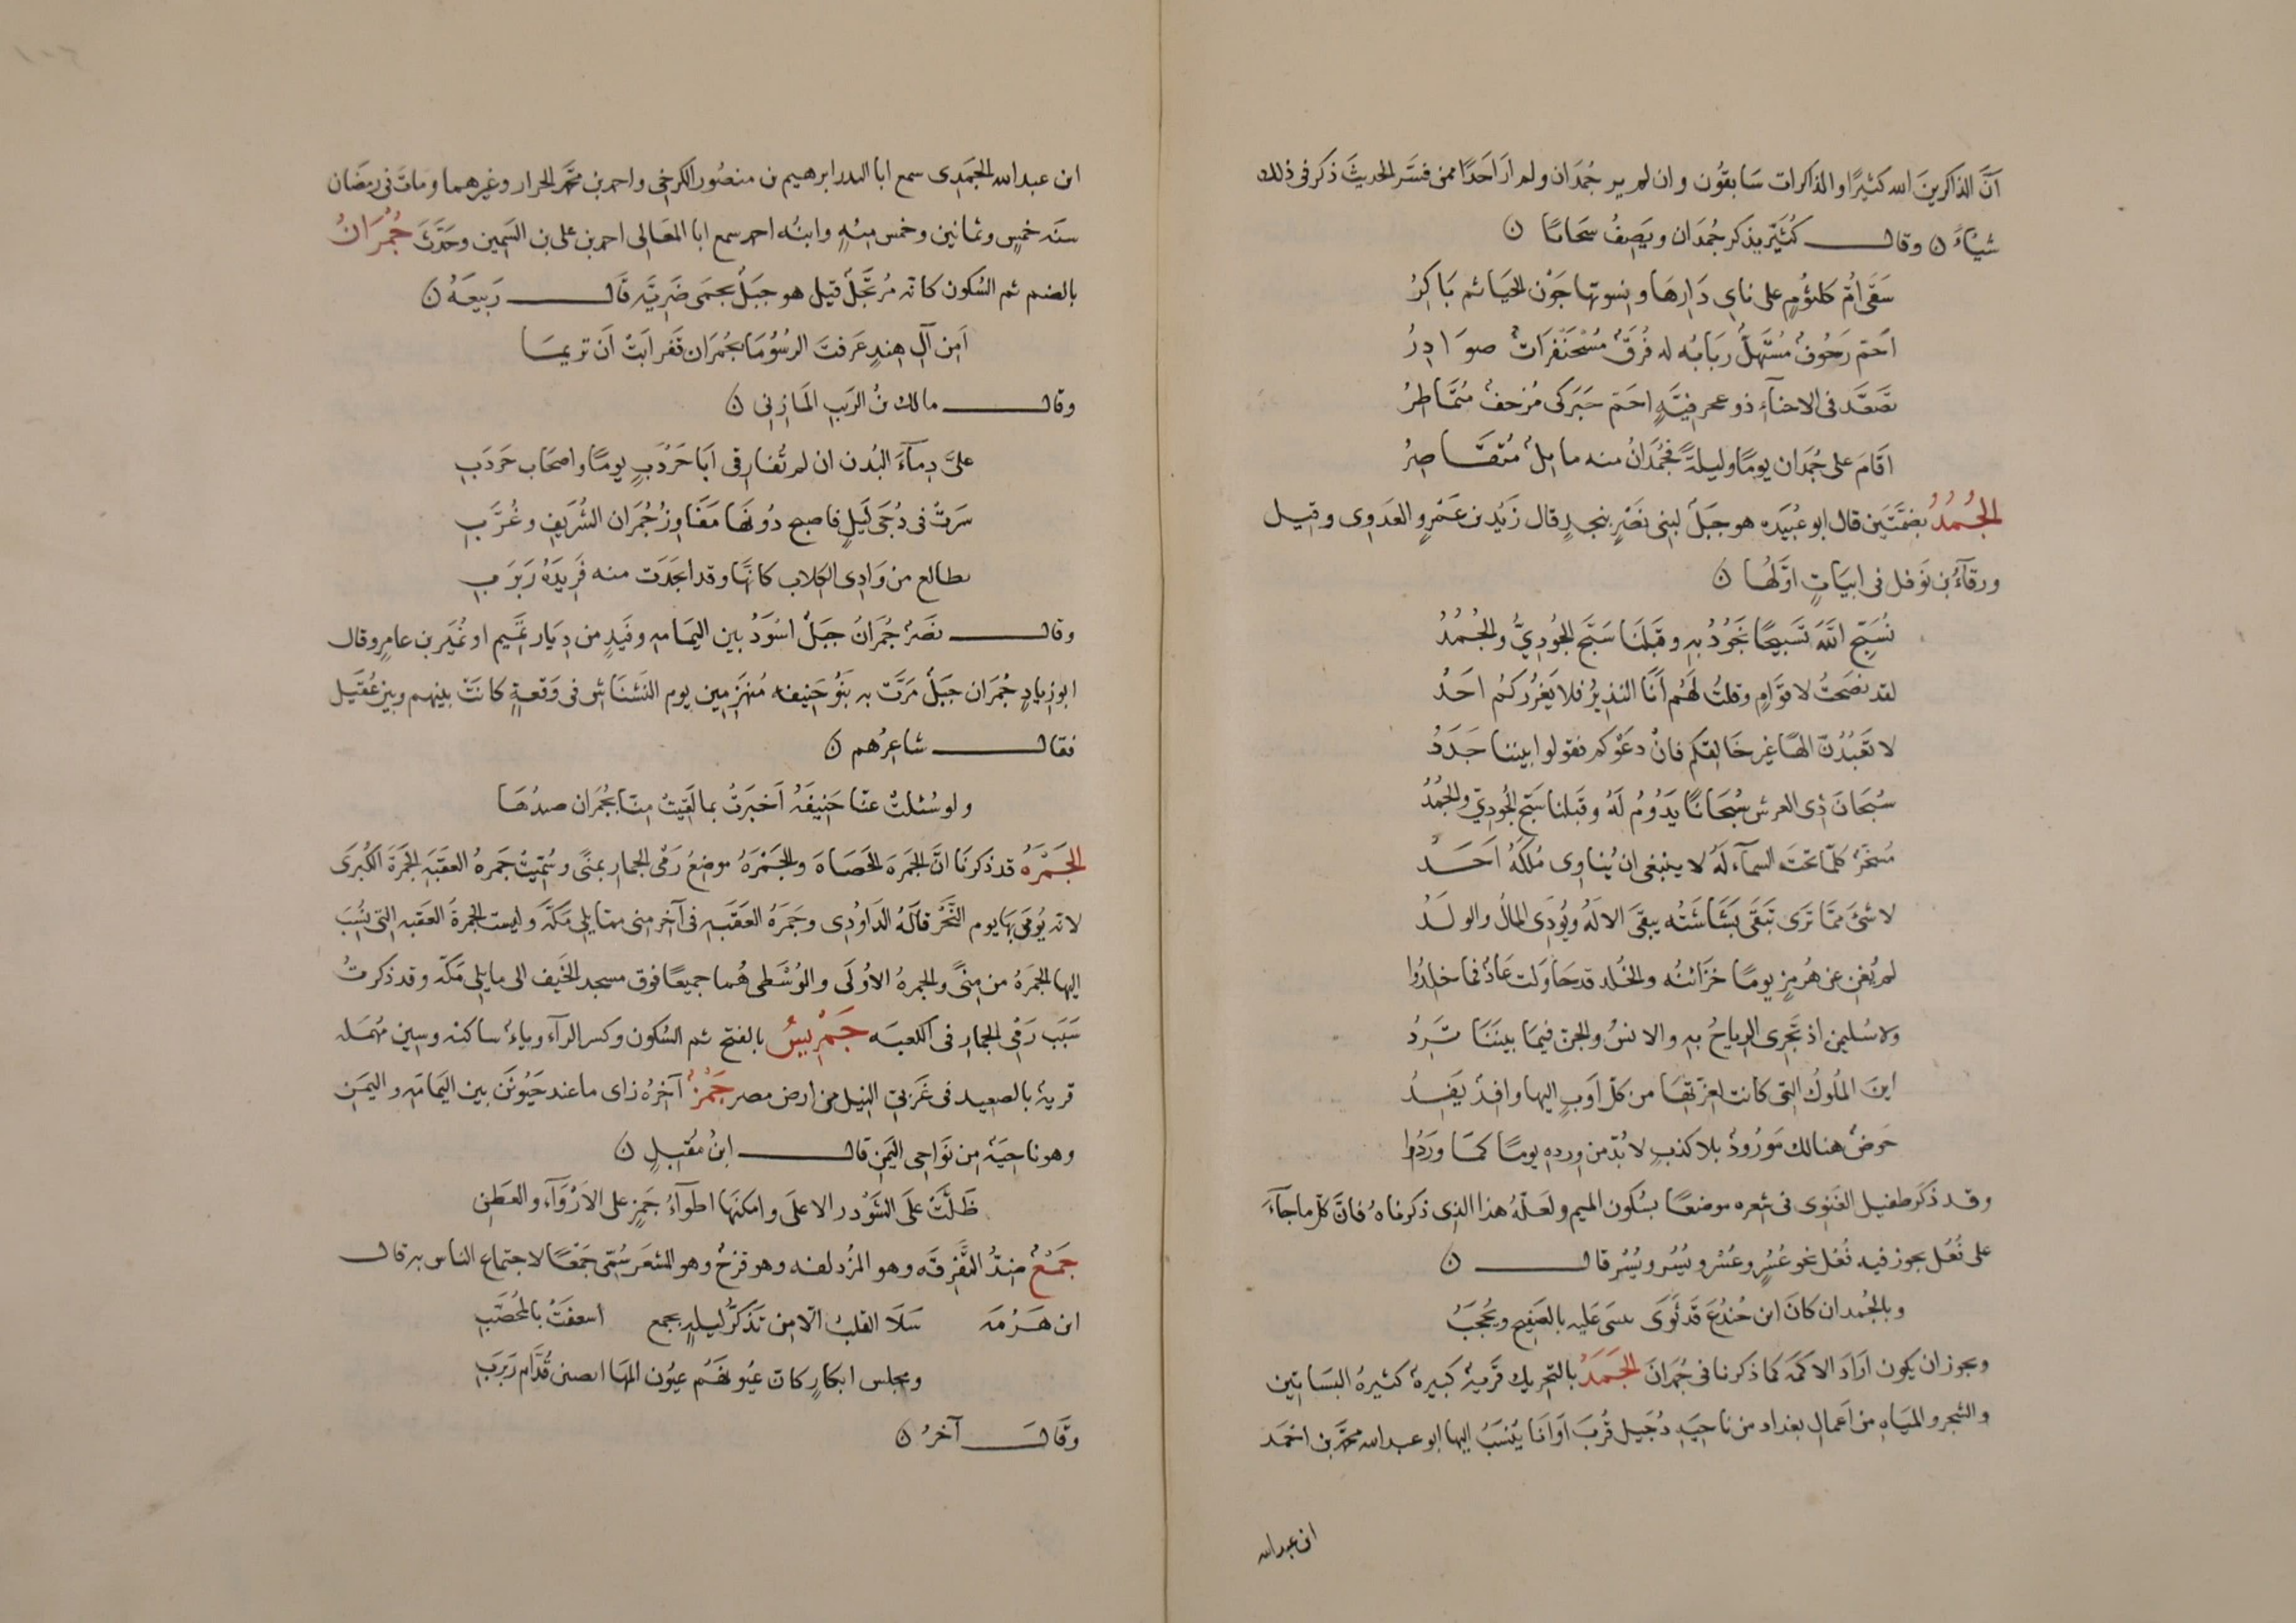 انَّ الذاكرينَ الله كثيرًا والذاكرات سَابقُون وان لم ير جُمْدَان ولم ارَ احَدًا ممن فسَّر الحديثَ ذكر فى ذلك
شيئاً ن وقال كُثَيّر يذكر جُمْدَان ويَصِفُ سَحَابًا ن
سَقَى امَّ كلثُومٍ على ناىِ دَارِهَا ونسوتها جَوْن الحَيَا ثم بَاكِرُ
اَحَم زَحُوفٌ مُسْتَهِلٌّ رَبَابُه له فُرَّقٌ مُسْحَنْفِرَاتٌ صوَادِرُ
تصَعَّد فى الاحناءِ ذو عجرفيَّةٍ احَمّ حَبَركى مُزحفٌ مُتَمَاطرُ
اقَامَ على جُمْدَان يومًا وليلَةً فجُمْدَانُ منه مايلٌ مُتقَاصِرُ
الجُمُدُ بضمَّتَين قال ابو عُبَيدَه هو جَبَلٌ لبنى نَصْرٍ بنجدٍ قال زَيْد بن عَمْرٍو العَدَوِى وقيل
ورقآءُ بن نَوفل فى ابيَاتٍ اوَّلهَا ن
نُسَبِّح اللَّهَ تَسبيحًا نجَوُدُ به وقَبلَنَا سَبَّح الجُودِىُّ والجُمُدُ
لقد نَصَحتُ لاقوَامٍ وقلتُ لَهُم اَنَا النذيرُ فلا يَغرُركُم احَدُ
لا تعَبُدُنَّ الهًا غير خَالقكم فانْ دعَوْكم فقولوا بيننا حَدَدُ
سُبحَانَ ذِى العرش سُبْحَانًا يَدُومُ لَهُ وقَبلنا سَبَّح الجُودِىّ والجُمُدُ
مُسَخَّرٌ كلّ مَا تحتَ السمآء لَهُ لا ينبغى ان يُناوِى مُلكَهُ احَدُ
لا شىَٔ ممَّا تَرَى تَبقَى بَشَاشَتُه يبقَى الالَهُ ويُودِى المالُ والولَدُ
لم تُغنِ عن هُرمزٍ يومًا خَزَائنُه والخُلد قد حَاوَلت عَادٌ فما خلدُوا
ولا سُليمن اذ تَجْرِى الرياحُ بهِ والانسُ والجنّ فيمَا بينَنَا تَرِدُ
اينَ المُلوكُ التى كانت لعِزّتهَا من كلّ اَوبٍ اليها وافدٌ يَفِدُ
حَوضٌ هنالك مَورُودٌ بلا كذبٍ لا بُدّ من ورده يومًا كمَا وَرَدُوا
وقد ذكَر طفيل الغَنوِى فى شعره موضعًا بسُكون الميم ولعَلّهُ هذا الذى ذكرناهُ فانَّ كلّ ما جآءَ
على فُعُل يجوز فيه فُعْل نحو عُسُرٍ وعُسْر ويُسُر ويُسْر قال ن
وبالجُمْد ان كانَ ابن جُندُعَ قَد ثَوَى سنبنى عَليه بالصفيح ويحُجَبُ
ويجوز ان يكون ارَادَ الاكمَه كما ذكرنا فى جُمرَانَ الجَمَدُ بالتحريك قَريةٌ كَبيرةٌ كثيرةُ البسَاتين
والشجر والميَاهِ من اَعمالِ بغداد من ناحيَةِ دُجَيل قُربَ اوَانَا يُنسَبُ اليها ابو عبد الله محمَّد بن احمَد
ابن عبد الله
ابن عبد الله الجَمَدِى سمع ابا البدر ابرهيم بن منصُور الكرخى واحمد بن محمَّد الحرار وغيرهما وماتَ فى رمضَان
سنَه خمسٍ وثمانين وخمس مئِهٍ وابنُه احمد سمع ابا المعَالى احمد بن على بن السَّمين وحَدَّثَ جُمْرَانُ
بالضم ثم السُكون كانه مُرتجَلٌ قيل هو جبَلٌ بحمَى ضَرِيَّه قَال رَبيعَهُ ن
اَمِن آلِ هِندٍ عَرفتَ الرسُومَا بجُمْرَان قَفرا ابَتْ اَن تريمَا
وقال مالك بنُ الريبِ المَازِنِى ن
علىَّ دِمآءُ البُدن ان لم تُفارِقى اَبَا حَردَبٍ يومًا واصحَاب حَردَبِ
سَرَتْ فى دُجَى لَيلٍ فاصبح دُونهَا مفَاوزُ جُمْرَان الشُرَيفِ وغُرَّبِ
تطالع من وَادِى الكلاب كانَّها وقد انجَدَت منه فَرِيدَهُ رَبْرَبِ
وقال نَصْرٌ جُمْرَانُ جبَلٌ اسْوَدُ بين اليمَامه وفَيدٍ من دِيَار تَميم او نُمَير بن عامرٍ وقال
ابو زيادٍ جُمْرَان جبَلٌ مَرَّت به بَنُو حَنيفه مُنهَزمِين يوم النَشنَاش فى وَقعةٍ كانَتْ بينهم وبين عُقَيل
فقال شاعِرُهم ن
ولو سُئلتْ عنّا حَنِيفَهُ اَخبَرَتْ بما لَقِيتْ مِنّا بجُمْرَان صيدُهَا
الجَمْرَهُ قد ذكَرنَا انَّ الجَمرَه الحَصَاهَ والجَمْرَهُ موضعُ رَمْى الجمار بمنًى وسُمّيتْ جَمرهُ العقبَه الجَمرَةَ الكُبرَى
لانه يُرمَى بهَا يوم النَّحْر قالَهُ الدَاوُدِى وجَمرَهُ العَقَبَه فى آخر منى ممّا يلى مَكّهَ وليست الجمرةَ العقبه التى نُسِبَ
اليها الجَمَرَهُ من مِنًى والجمرهُ الاُولَى والوُسْطى هُما جميعًا فوق مسجد الخَيف الى ما يلى مَكّه وقد ذكرتُ
سَبَب رَمْى الجمارِ فى الكعبَه جَمْرِيسُ بالفتح ثم السُكون وكسر الرآء وياءٌ ساكنه وسين مُهمَله
قريةٌ بالصعيد فى غَربىّ النيل من ارض مصر جُمْزٌ آخرُه زاى ماءٌ عند حَبَوْتَن بين اليَمامَه واليمَن
وهو ناحيَهٌ من نَوَاحِى اليَمن قال ابنُ مُقبلٍ ن
ظَلَّتْ على الشَوْذر الاعلَى وامكنَهَا اطوآءُ جَمزٍ على الاَرْوَآءِ والعَطنِ
جَمْعٌ ضِدُّ التَّفرِقَه وهو المزُدلفه وهو قزَحُ وهو المشعَر سُمّى جَمْعًا لاجتماع الناس به قال
ابن هَرْمَه سَلَا القلبُ الّا مِن تذَكُّرِ لَيلَةٍ بجمع اسعفَتْ بالمُحَصَّبِ
ومجلس ابكارٍ كان عيُونهَم عيُون المَهَا انضين قُدَّام رَبرَبِ
وقَالَ آخرُ ن